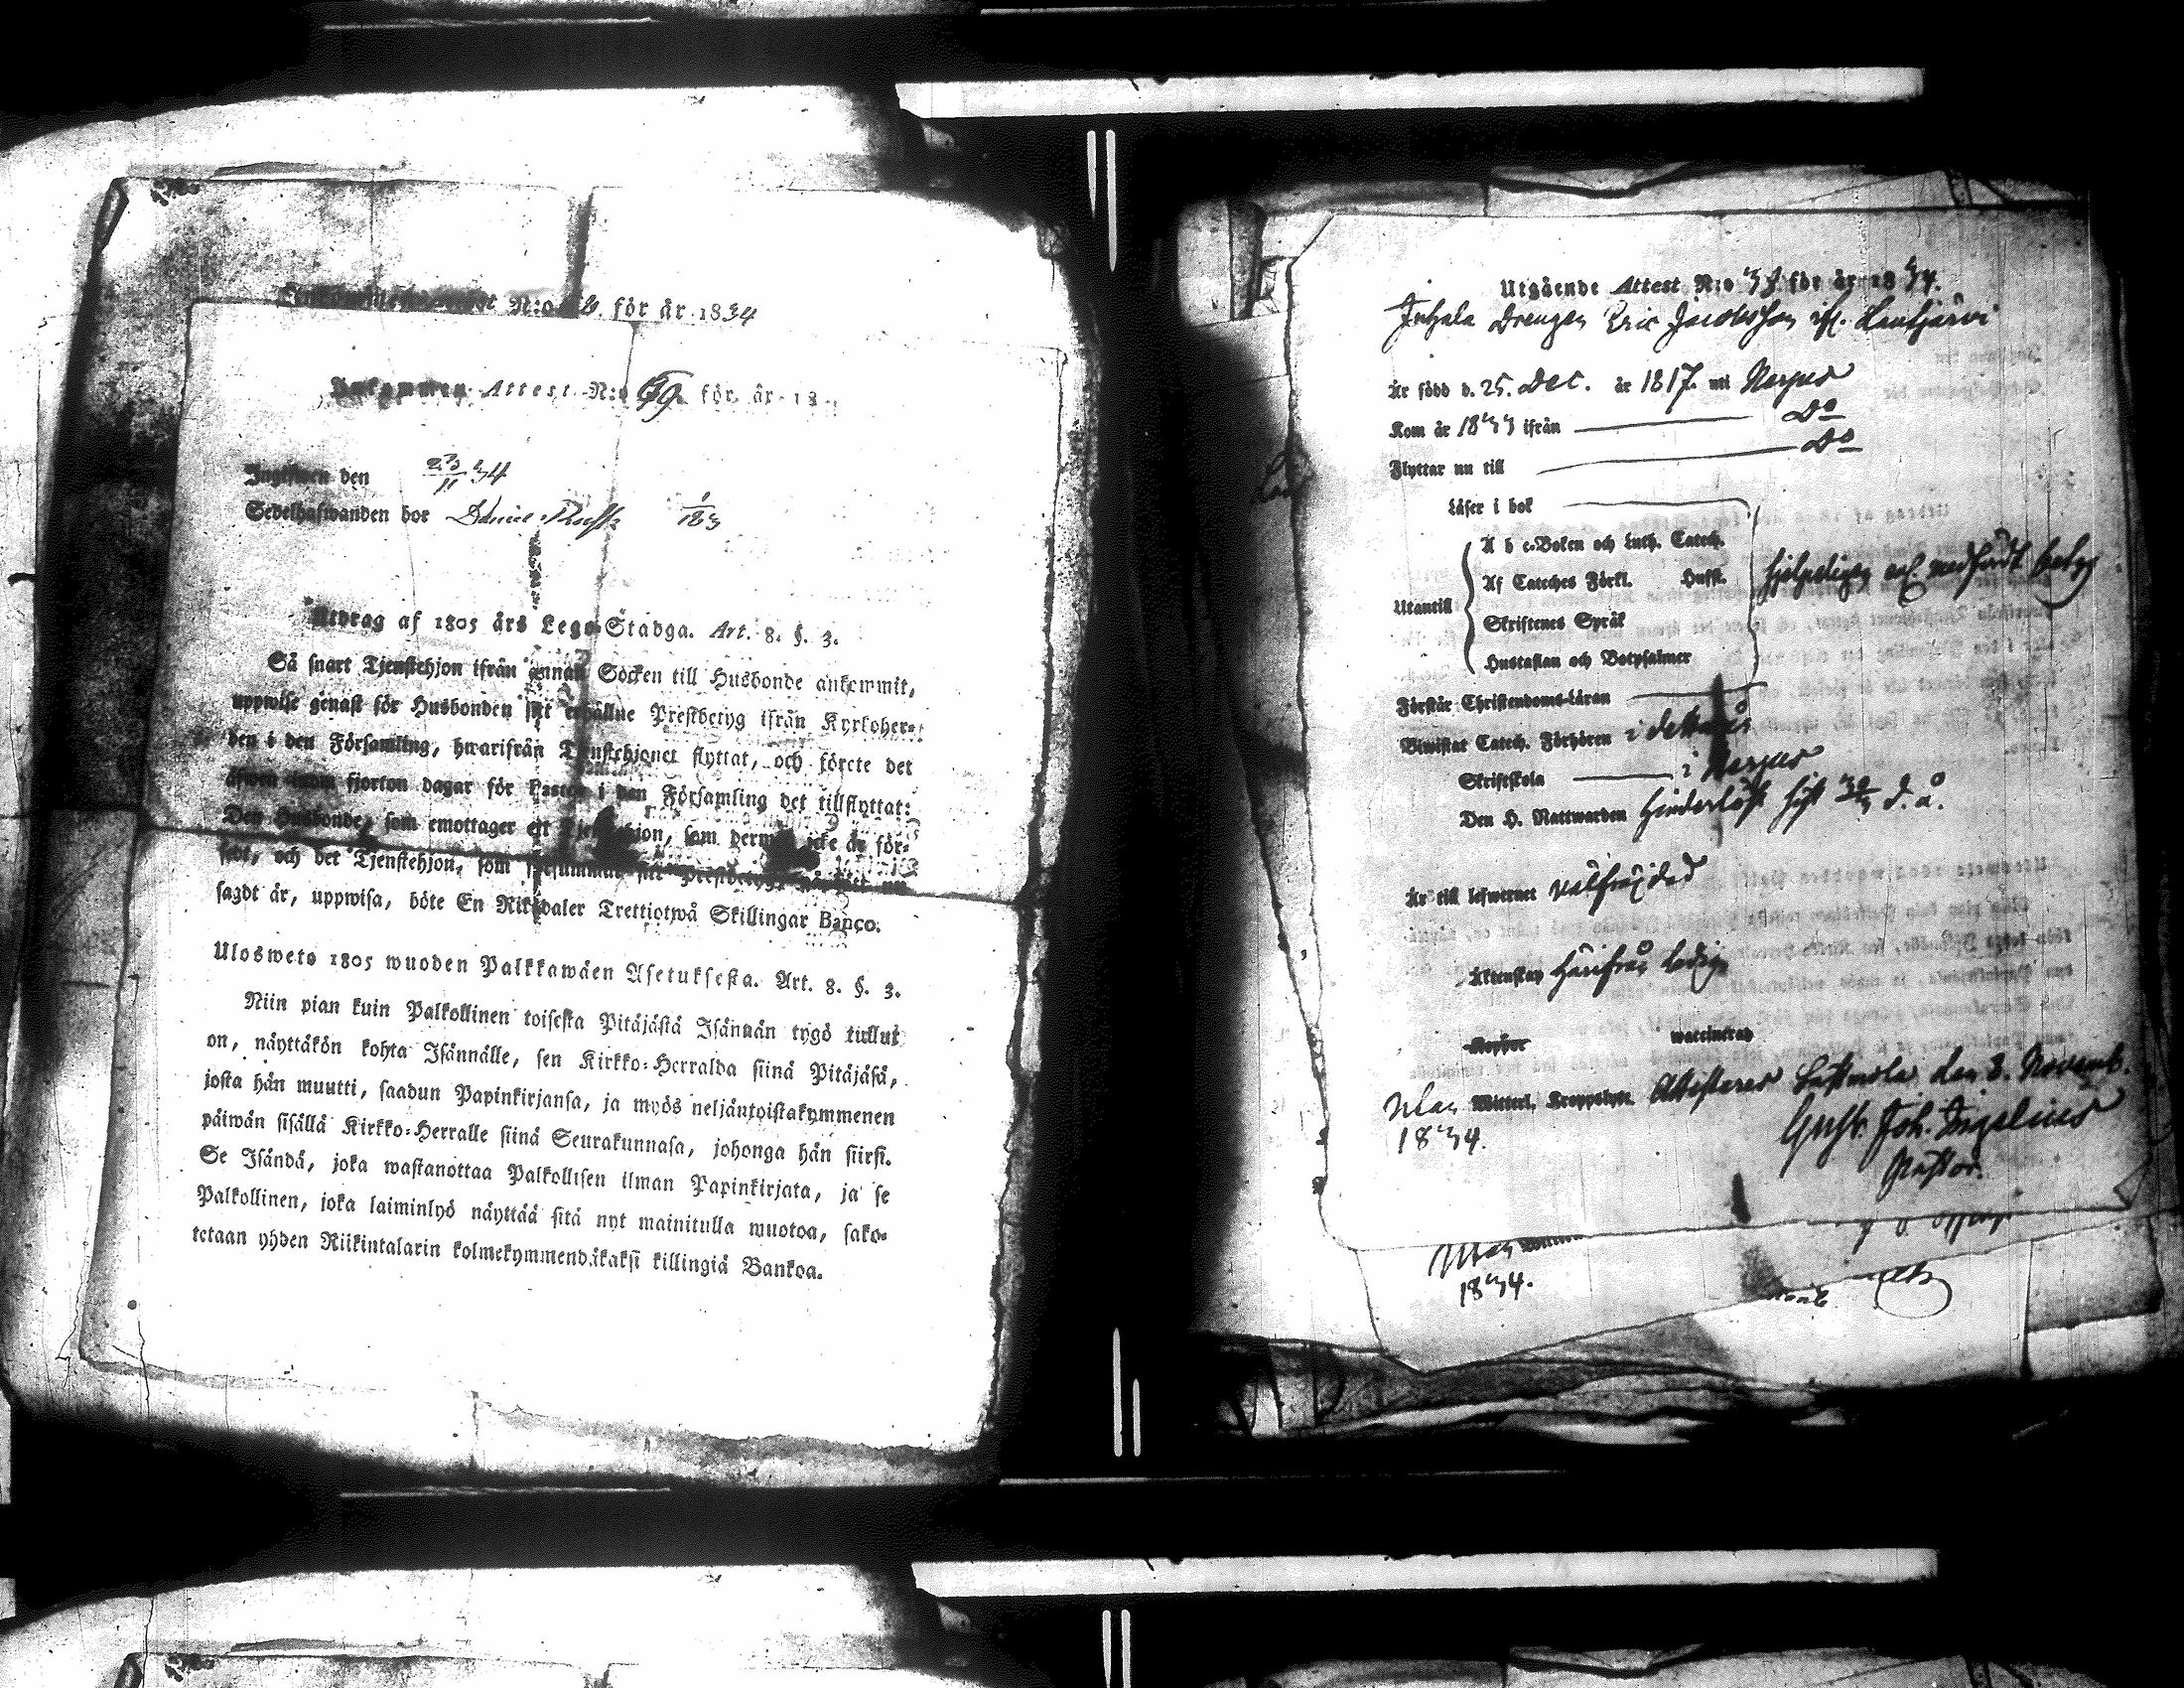 N:o för år 1834
Ankommen Attest N:o 69. för år 18
Ingifwen den 23/11 34
Sedelhafwanden bor Daniel 183
Utdrag af 1805 års Lego-Stadga. Art. 8. §. 3.
Så snart Tjenstehjon ifrån annan Socken till Husbonde ankommit,
uppwise genast för Husbonden sitt erhållne Prestbetyg ifrån Kyrkoher-
den i den Församling, hwarifrån Tjenstehjonet flyttat, och förete det
äfwen inom fjorton dagar för Pastor i den Församling det tillflyttat:
Den Husbonde, som emottager ett Tjenstehjon, som dermed icke är för-
sedt, och det Tjenstehjon, som försummar sitt Prestbetyg, nu
sagdt är, uppwisa, böte En Riksdaler Trettiotwå Skillingar Banco.
Ulosweto 1805 wuoden Palkkawäen Asetuksesta. Art. 8. §. 3.
Niin pian kuin Palkollinen toisesta Pitäjästä Isännän tygö tullut
on, näyttäkön kohta Isännälle, sen Kirkko-Herralda siinä Pitäjäsä,
josta hän muutti, saadun Papinkirjansa, ja myös neljäntoistakymmenen
päiwän sisällä Kirkko-Herralle siinä Seurakunnasa, johonga hän siirsi.
Se Isändä, joka wastanottaa Palkollisen ilman Papinkirjata, ja se
Palkollinen, joka laiminlyö näyttää sitä nyt mainitulla muotoa, sako-
tetaan yhden Riikintalarin kolmekymmendäkaksi killingiä Bankoa.
Utgående Attest N:o 33 för år 1834.
Inhala Drengen Eric Jacobsson ifr. Lautjärvi
Är född d. 25. Dec. år 1817. uti Nerpes
Kom år 1833 ifrån Do
Flyttar nu till Do
Läser i bok
A b c-Boken och Luth. Catech.
Af Cateches Förkl. Husst.
Utantill
Skriftenes Språk
Hustaflan och Botpsalmer
hjelpeligen enl. medfördt betyg
Förstår Christendoms-Läran
Biwistat Catech. Förhören i detta år
Skriftskola i Nerpes
Den H. Nattwarden hinderlöst sist 30/3 d. å.
Är till lefwernet välfräjdad
Äktenskap härifrån ledig
Koppor waccinerad
Utan Witterl. Kroppslyte. Attesteras Lappmola den 8. Novemb.
1834.
Gust. Joh. Ingelius
Pastor.
Utan
1834.